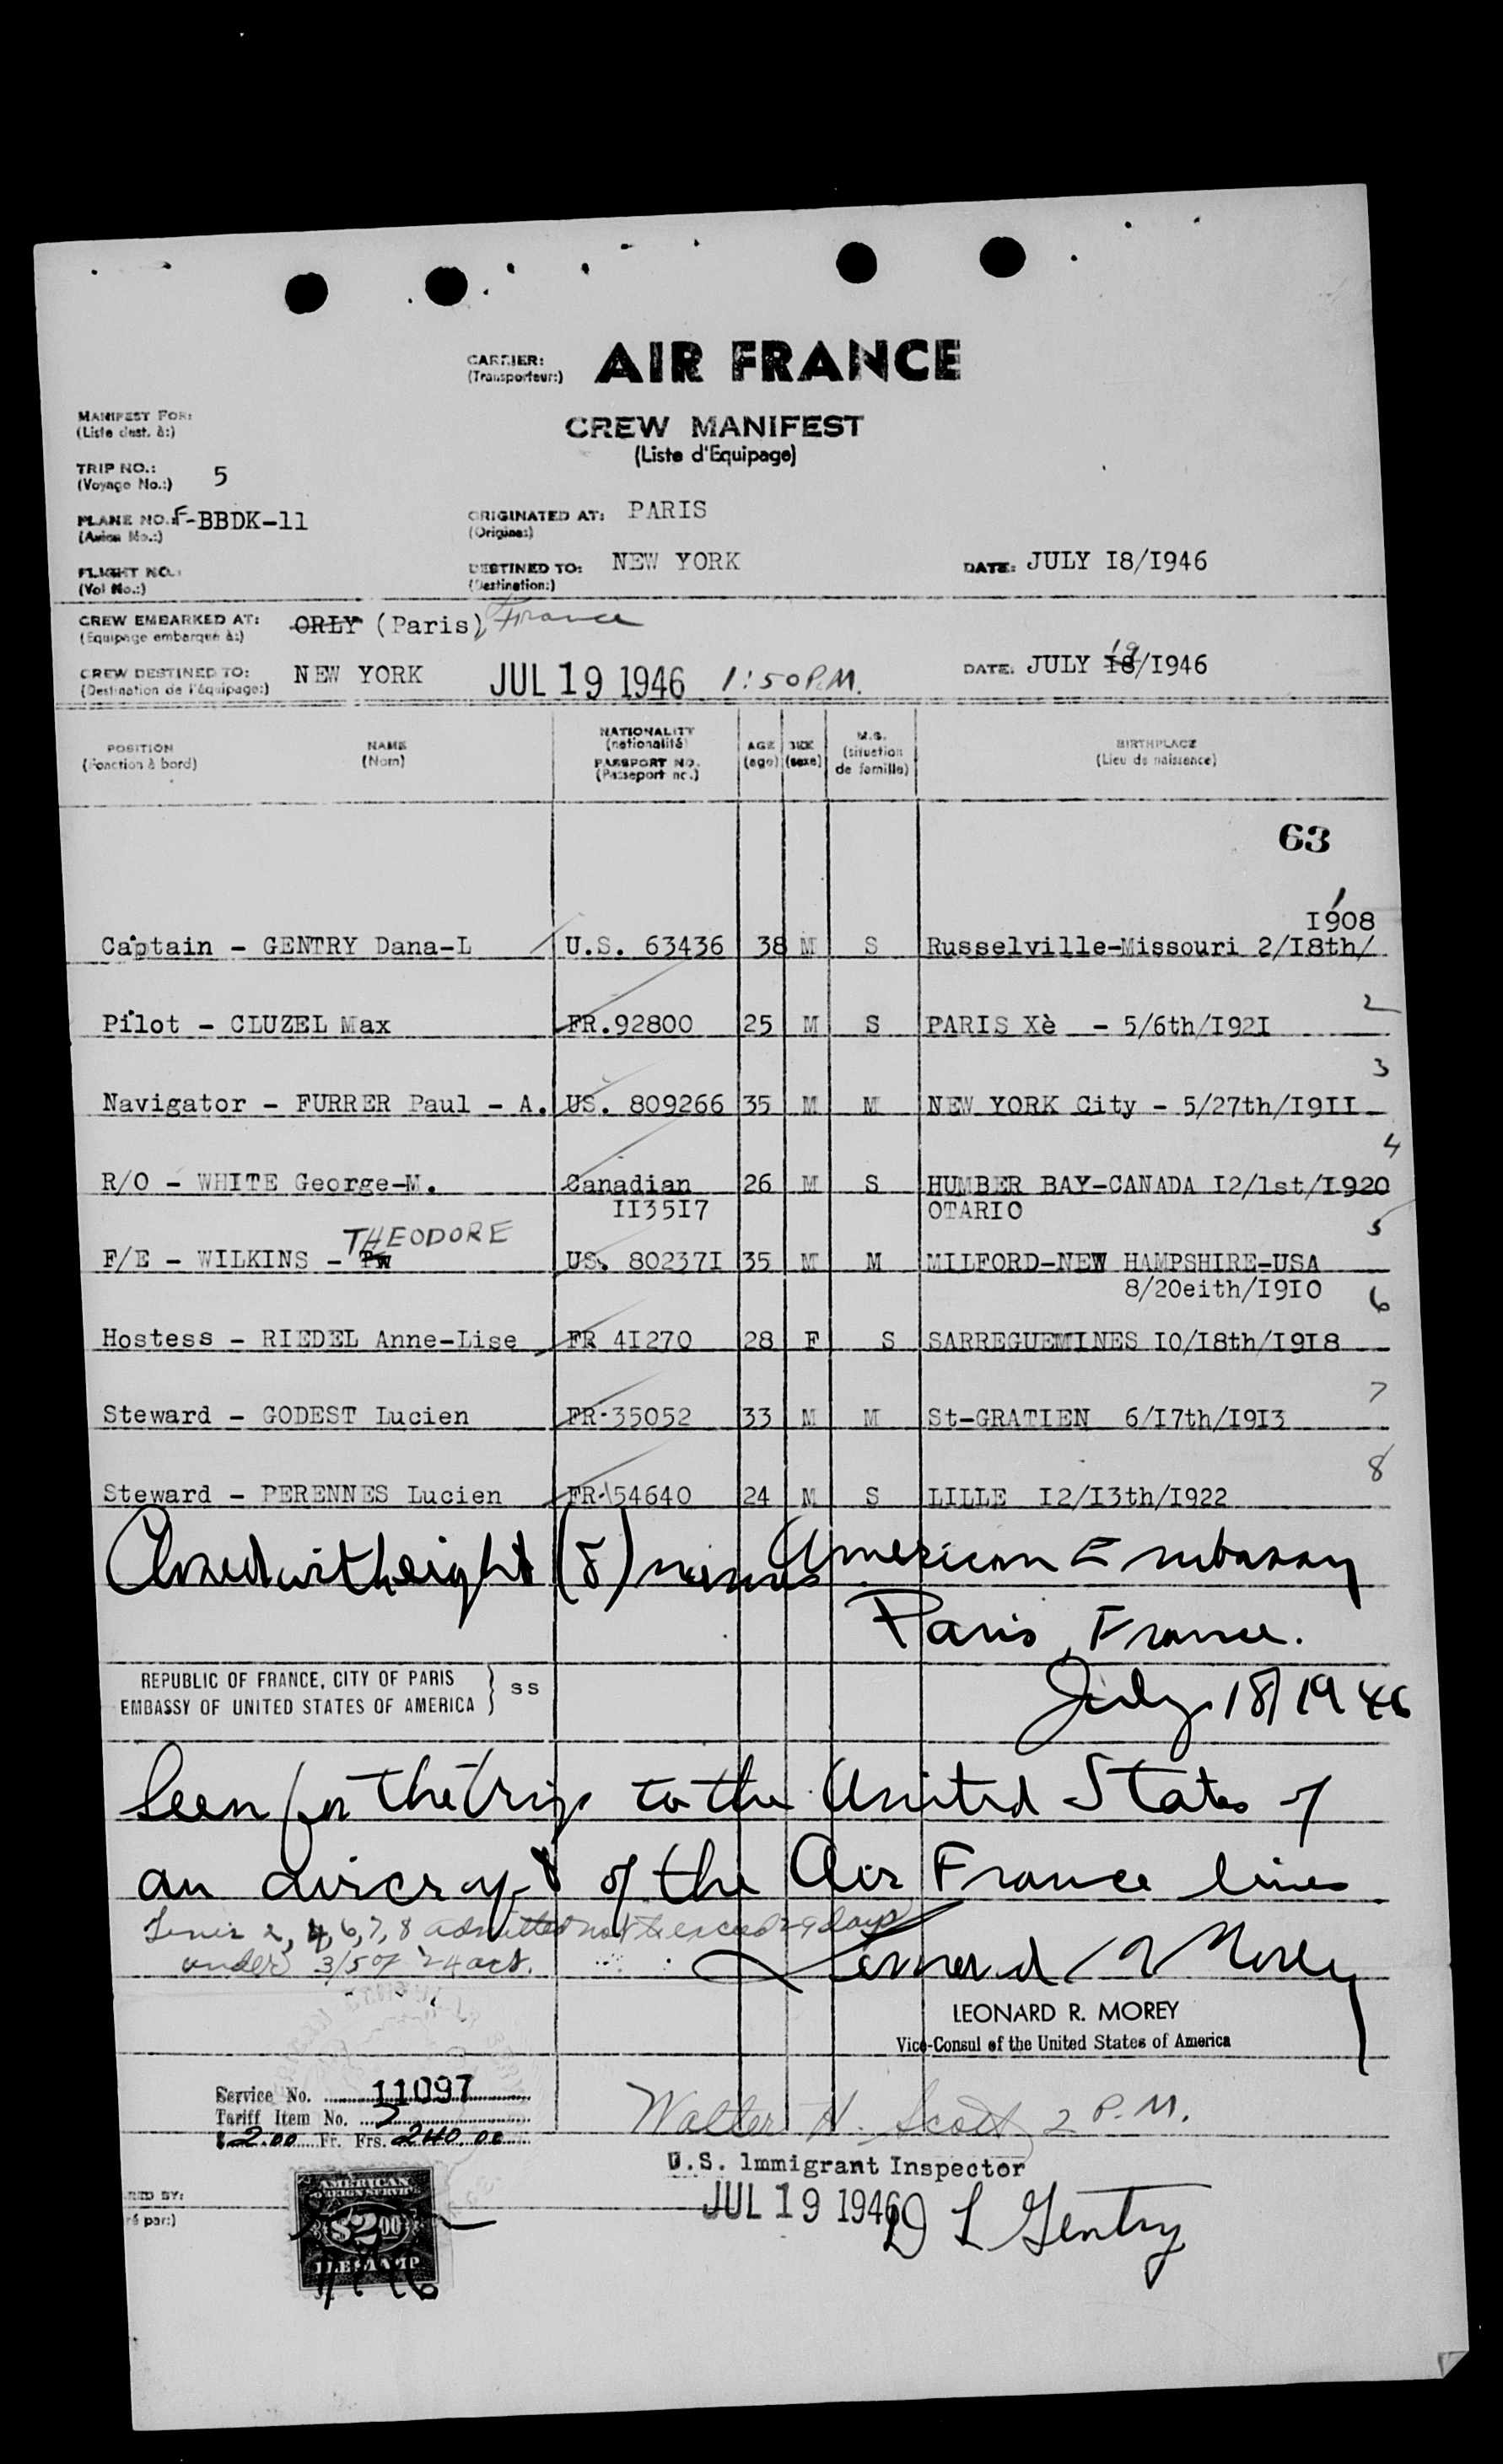 CARRIER: AIR FRANCE
(Transporteur:)
MANIFEST FOR:
(Liste dest. à:)
CREW MANIFEST
(Liste d'Equipage)
TRIP NO.: 5
(Voyage No.:)
PLANE NO. F-BBDK-11
(Avion No.:)
ORIGINATED AT: PARIS
(Origine:)
FLIGHT NO.:
(Vol No.:)
DESTINED TO: NEW YORK
(Destination:)
DATE: JULY I8/I946
CREW EMBARKED AT: ORLY (Paris), France
(Equipage embarqué à:)
CREW DESTINED TO: NEW YORK JUL 19 1946 1:50 P.M.
(Destination de l'équipage:)
DATE: JULY I8 19/I946
POSITION
(Fonction à bord)
NAME
(Nom)
NATIONALITY
(nationalité)
PASSPORT NO.
(Passeport no.)
AGE
(age)
SEX
(sexe)
M.S.
(situation
de famille)
BIRTHPLACE
(Lieu de naissance)
63
1
I908
Captain - GENTRY Dana-L U.S. 63436 38 M S Russelville-Missouri 2/I8th/
2
Pilot - CLUZEL Max FR.92800 25 M S PARIS Xè - 5/6th/I92I
3
Navigator - FURRER Paul - A. US. 809266 35 M M NEW YORK City - 5/27th/I9II
4
R/O - WHITE George-M. Canadian 26 M S HUMBER BAY-CANADA I2/1st/I920
II35I7 OTARIO
THEODORE 5
F/E - WILKINS - US. 80237I 35 M M MILFORD-NEW HAMPSHIRE-USA
8/20eith/I9I0
6
Hostess - RIEDEL Anne-Lise FR 4I270 28 F S SARREGUEMINES I0/I8th/I9I8
7
Steward - GODEST Lucien FR-35052 33 M M St-GRATIEN 6/I7th/I9I3
8
Steward - PERENNES Lucien FR-54640 24 M S LILLE I2/I3th/I922
Closed with eight (8) names American Embassy
Paris, France.
REPUBLIC OF FRANCE, CITY OF PARIS
EMBASSY OF UNITED STATES OF AMERICA } SS
July 18 1946
Seen for the trip to the United States of
an aircraft of the Air France lines
Lines 2, 4, 6, 7, 8 admitted not to exceed 29 days
under 3/5 of 24 act.
Leonard R Morey
LEONARD R. MOREY
Vice-Consul of the United States of America
Service No. 11097
Tariff Item No. 7
$ 2.00 Fr. Frs. 240.00
Walter H. Scott 2 P.M.
U.S. Immigrant Inspector
JUL 19 1946
D L Gentry
RED BY:
ré par:)
AMERICAN
FOREIGN SERVICE
$2.00
FEE STAMP